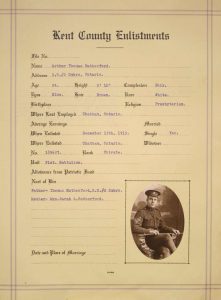 Kent County Enlistments
File No.
Name Arthur Thomas Rutherford.
Address R.R./2 Dobro, Ontario.
Age Height 5' 10" Complexion
Eyes Blue. Hair Brown. Race White.
Birthplace Religion Presbyterian.
Where Last Employed Chatham, Ontario.
Average Earnings Married
When Enlisted December 11th, 1915. Single Yes.
Where Enlisted Chatham, Ontario. Widower
No. Rank Private.
Unit 91st. Battalion.
Allowance from Patriotic Fund
Next of Kin
Father- Thomas Rutherford
Mother- Mrs. Sarah Rutherford.
Date and Place of Marriage